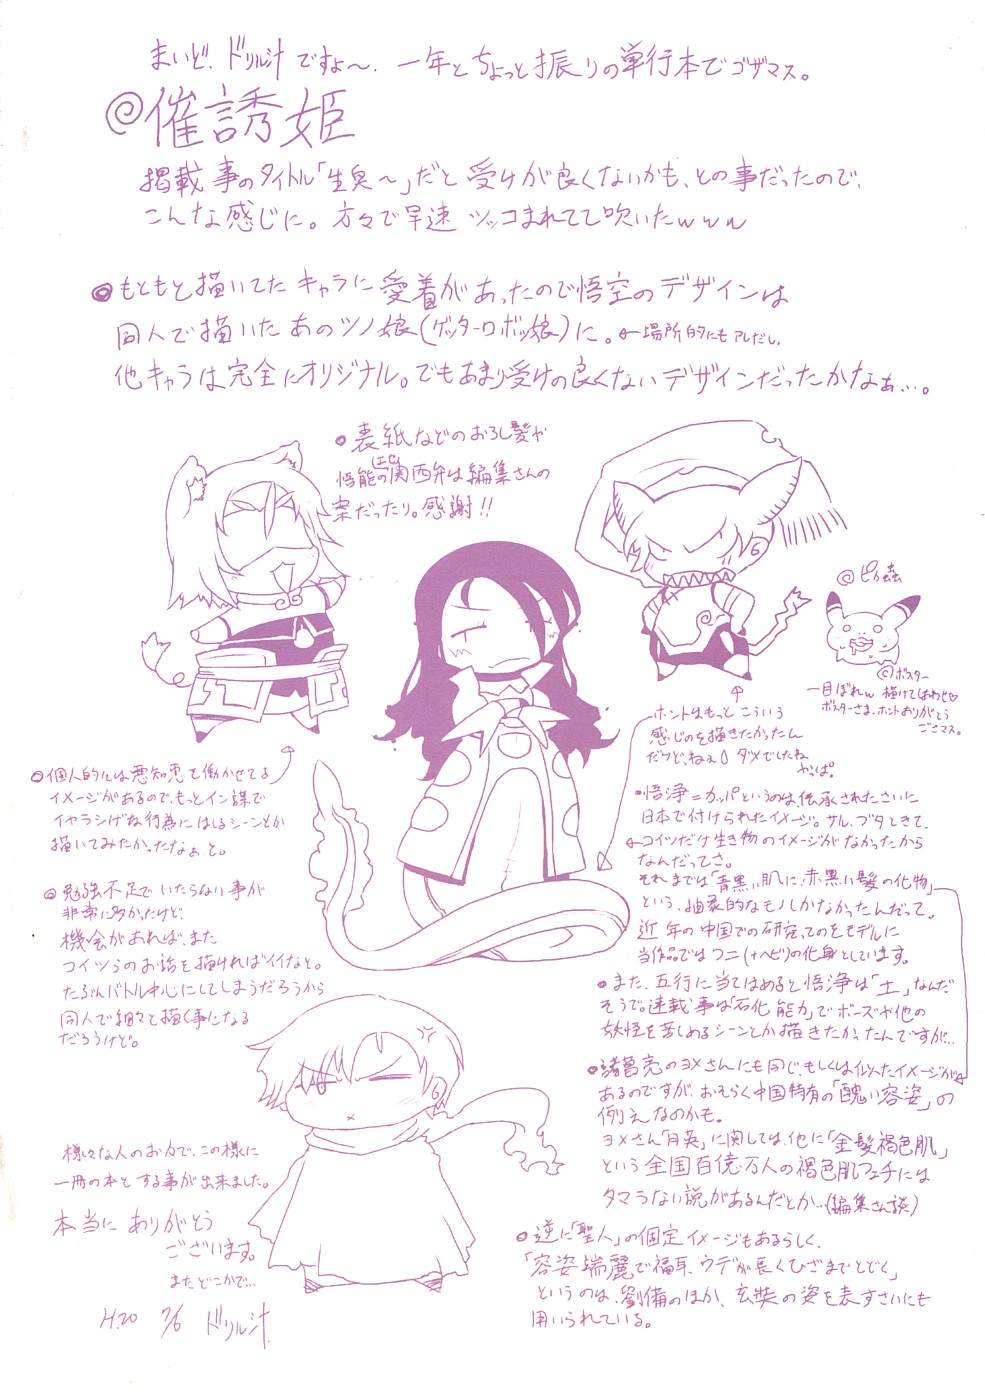 まいど、ドリル汁ですよ〜、一年とちょっと振りの単行本でゴザマス。
@催誘姫
掲載事のタイトル「生臭〜」だと受けが良くないかも、との事だったので、
こんな感じに。方々で早速ツッコまれてて吹いたwww
◎もともと描いてたキャラに愛着があったので悟空のデザインは
同人で描いたあのツノ娘(ゲッターロボッ娘)に。←場所的にもアレだし、
他キャラは完全にオリジナル。でもあまり受けの良くないデザインだったかなぁ…。
◎表紙などのおろし髪や
悟能の(エセ)関西弁は編集さんの
案だったり。感謝!!
◎個人的には悪知恵を働かせてる
イメージがあるので、もっとイン謀で
イヤラシげな行為にはしるシーンとか
描いてみたかったなぁと。
◎勉強不足でいたらない事が
非常に多かったけど、
機会があれば、また
コイツらのお話を描ければイイなと。
たぶんバトル中心にしてしまうだろうから
同人で細々と描く事になる
だろうけど。
様々な人のお力で、この様に
一冊の本とする事が出来ました。
本当にありがとう
ございます。
またどこかで…
H.20 7/6 ドリル汁
©ピカ蟲
©ボスター
一目ぼれw 描けてしあわせ♡
ボスターさま、ホントありがとう
ございマス。
ホントはもっとこういう
感じのを描きたかったん
だけど、ねぇ ダメでしたね
やっぱ。
・悟浄=カッパというのは、伝承されたさいに
日本で付けられたイメージ。サル、ブタときて、
コイツだけ生き物のイメージがなかったから
なんだってさ。
それまでは「青黒い肌に、赤黒い髪の化物」
という、抽象的なモノしかなかったんだって。
近年の中国での研究、てのをモデルに
当作品ではワニ(+ヘビ)の化身としています。
◎また、五行に当てはめると悟浄は「土」なんだ
そうで。連載事は「石化能力」でボーズや他の
妖怪を苦しめるシーンとか描きたかったんですが…
◎諸葛亮のヨメさんにも同じ、もしくは似たイメージが
あるのですが、おそらく中国特有の「醜い容姿」の
例え、なのかも。
ヨメさん「月英」に関しては、他に「金髪褐色肌」
という全国百億万人の褐色肌フェチには
タマラない説があるんだとか…(編集さん談)
◎逆に「聖人」の固定イメージもあるらしく、
「容姿端麗で福耳、ウデが長くひざまでとどく」
というのは、劉備のほか、玄奘の姿を表すさいにも
用いられている。